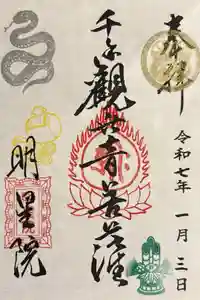 奉拝
令和七年 一月 三日
千手観世音菩薩
明星院